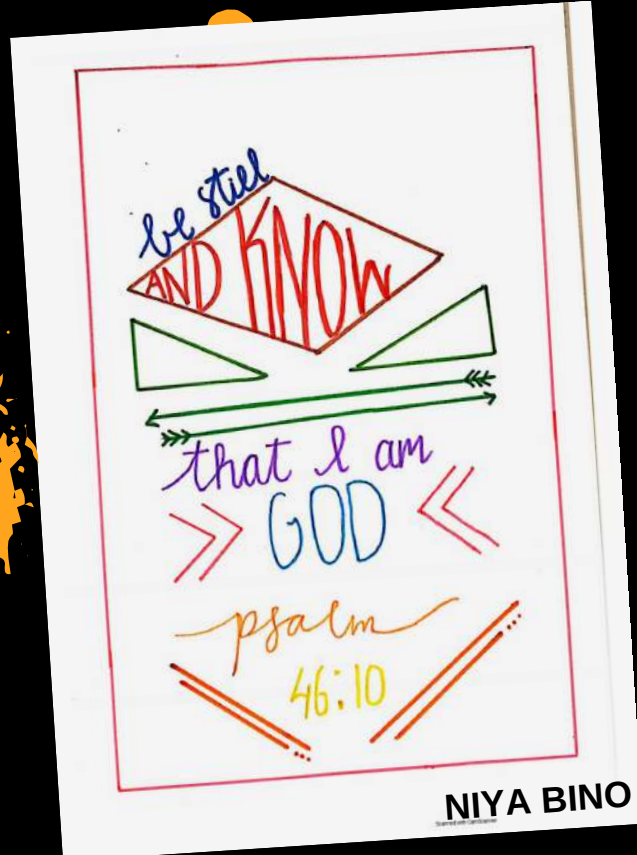 be still
AND KNOW
that I am
GOD
psalm
46:10
NIYA BINO
Scanned with CamScanner